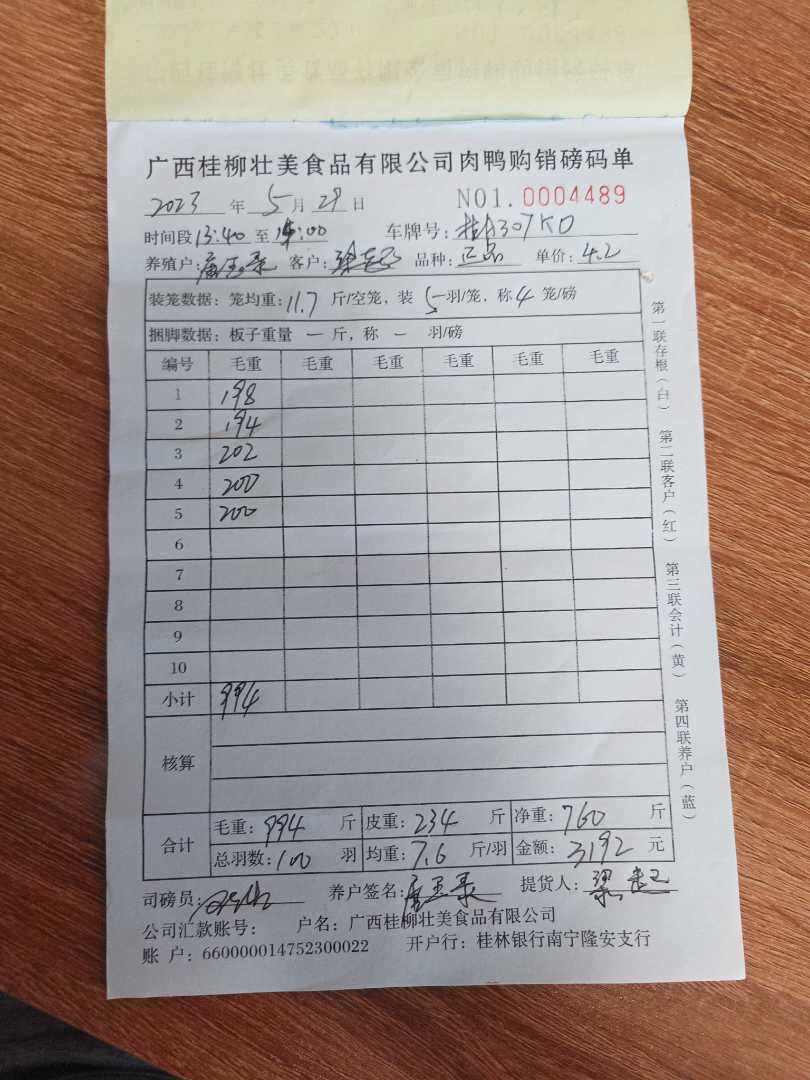 广西桂柳壮美食品有限公司肉鸭购销磅码单
2023 年 5 月 29 日 NO1. 0004489
时间段 13:40 至 14:00 车牌号: 桂A307K0
养殖户: 客户: 品种: 正品 单价: 4.2
装笼数据: 笼均重: 11.7 斤/空笼, 装 5 羽/笼, 称 4 笼/磅
捆脚数据: 板子重量 一 斤, 称 一 羽/磅
编号 毛重 毛重 毛重 毛重 毛重 毛重
1 198
2 194
3 202
4 200
5 200
6
7
8
9
10
小计 994
核算
合计 毛重: 994 斤 皮重: 234 斤 净重: 760 斤
总羽数: 100 羽 均重: 7.6 斤/羽 金额: 3192 元
司磅员: 养户签名: 提货人:
公司汇款账号: 户名: 广西桂柳壮美食品有限公司
账 户: 660000014752300022 开户行: 桂林银行南宁隆安支行
第一联存根(白) 第二联客户(红) 第三联会计(黄) 第四联养户(蓝)